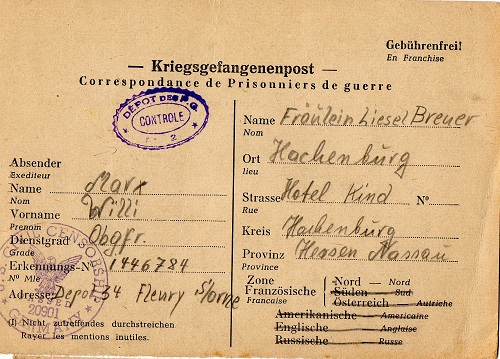 Gebührenfrei!
En Franchise
— Kriegsgefangenenpost —
Correspondance de Prisonniers de guerre
DÉPOT DES P.G.
CONTROLE
2
Absender
Exediteur
Name Marx
Nom
Vorname Willi
Prenom
Dienstgrad Obgfr.
Grade
Erkennungs-No 1446784
No Mle
Adresse: Depot 34 Fleury s/orne
(I) Nicht zutreffendes durchstreichen
Rayer les mentions inutiles.
U.S. CENSORSHIP
20901
GERMANY
Name Fräulein Liesel Breuer
Nom
Ort Hachenburg
lieu
Strasse Hotel Kind No
Rue
Kreis Hachenburg
Provinz Hessen Nassau
Province
Zone
Französische
Francaise
Nord — Nord
Süden — Sud
Österreich — Autriche
Amerikanische — Americaine
Englische — Anglaise
Russische — Russe